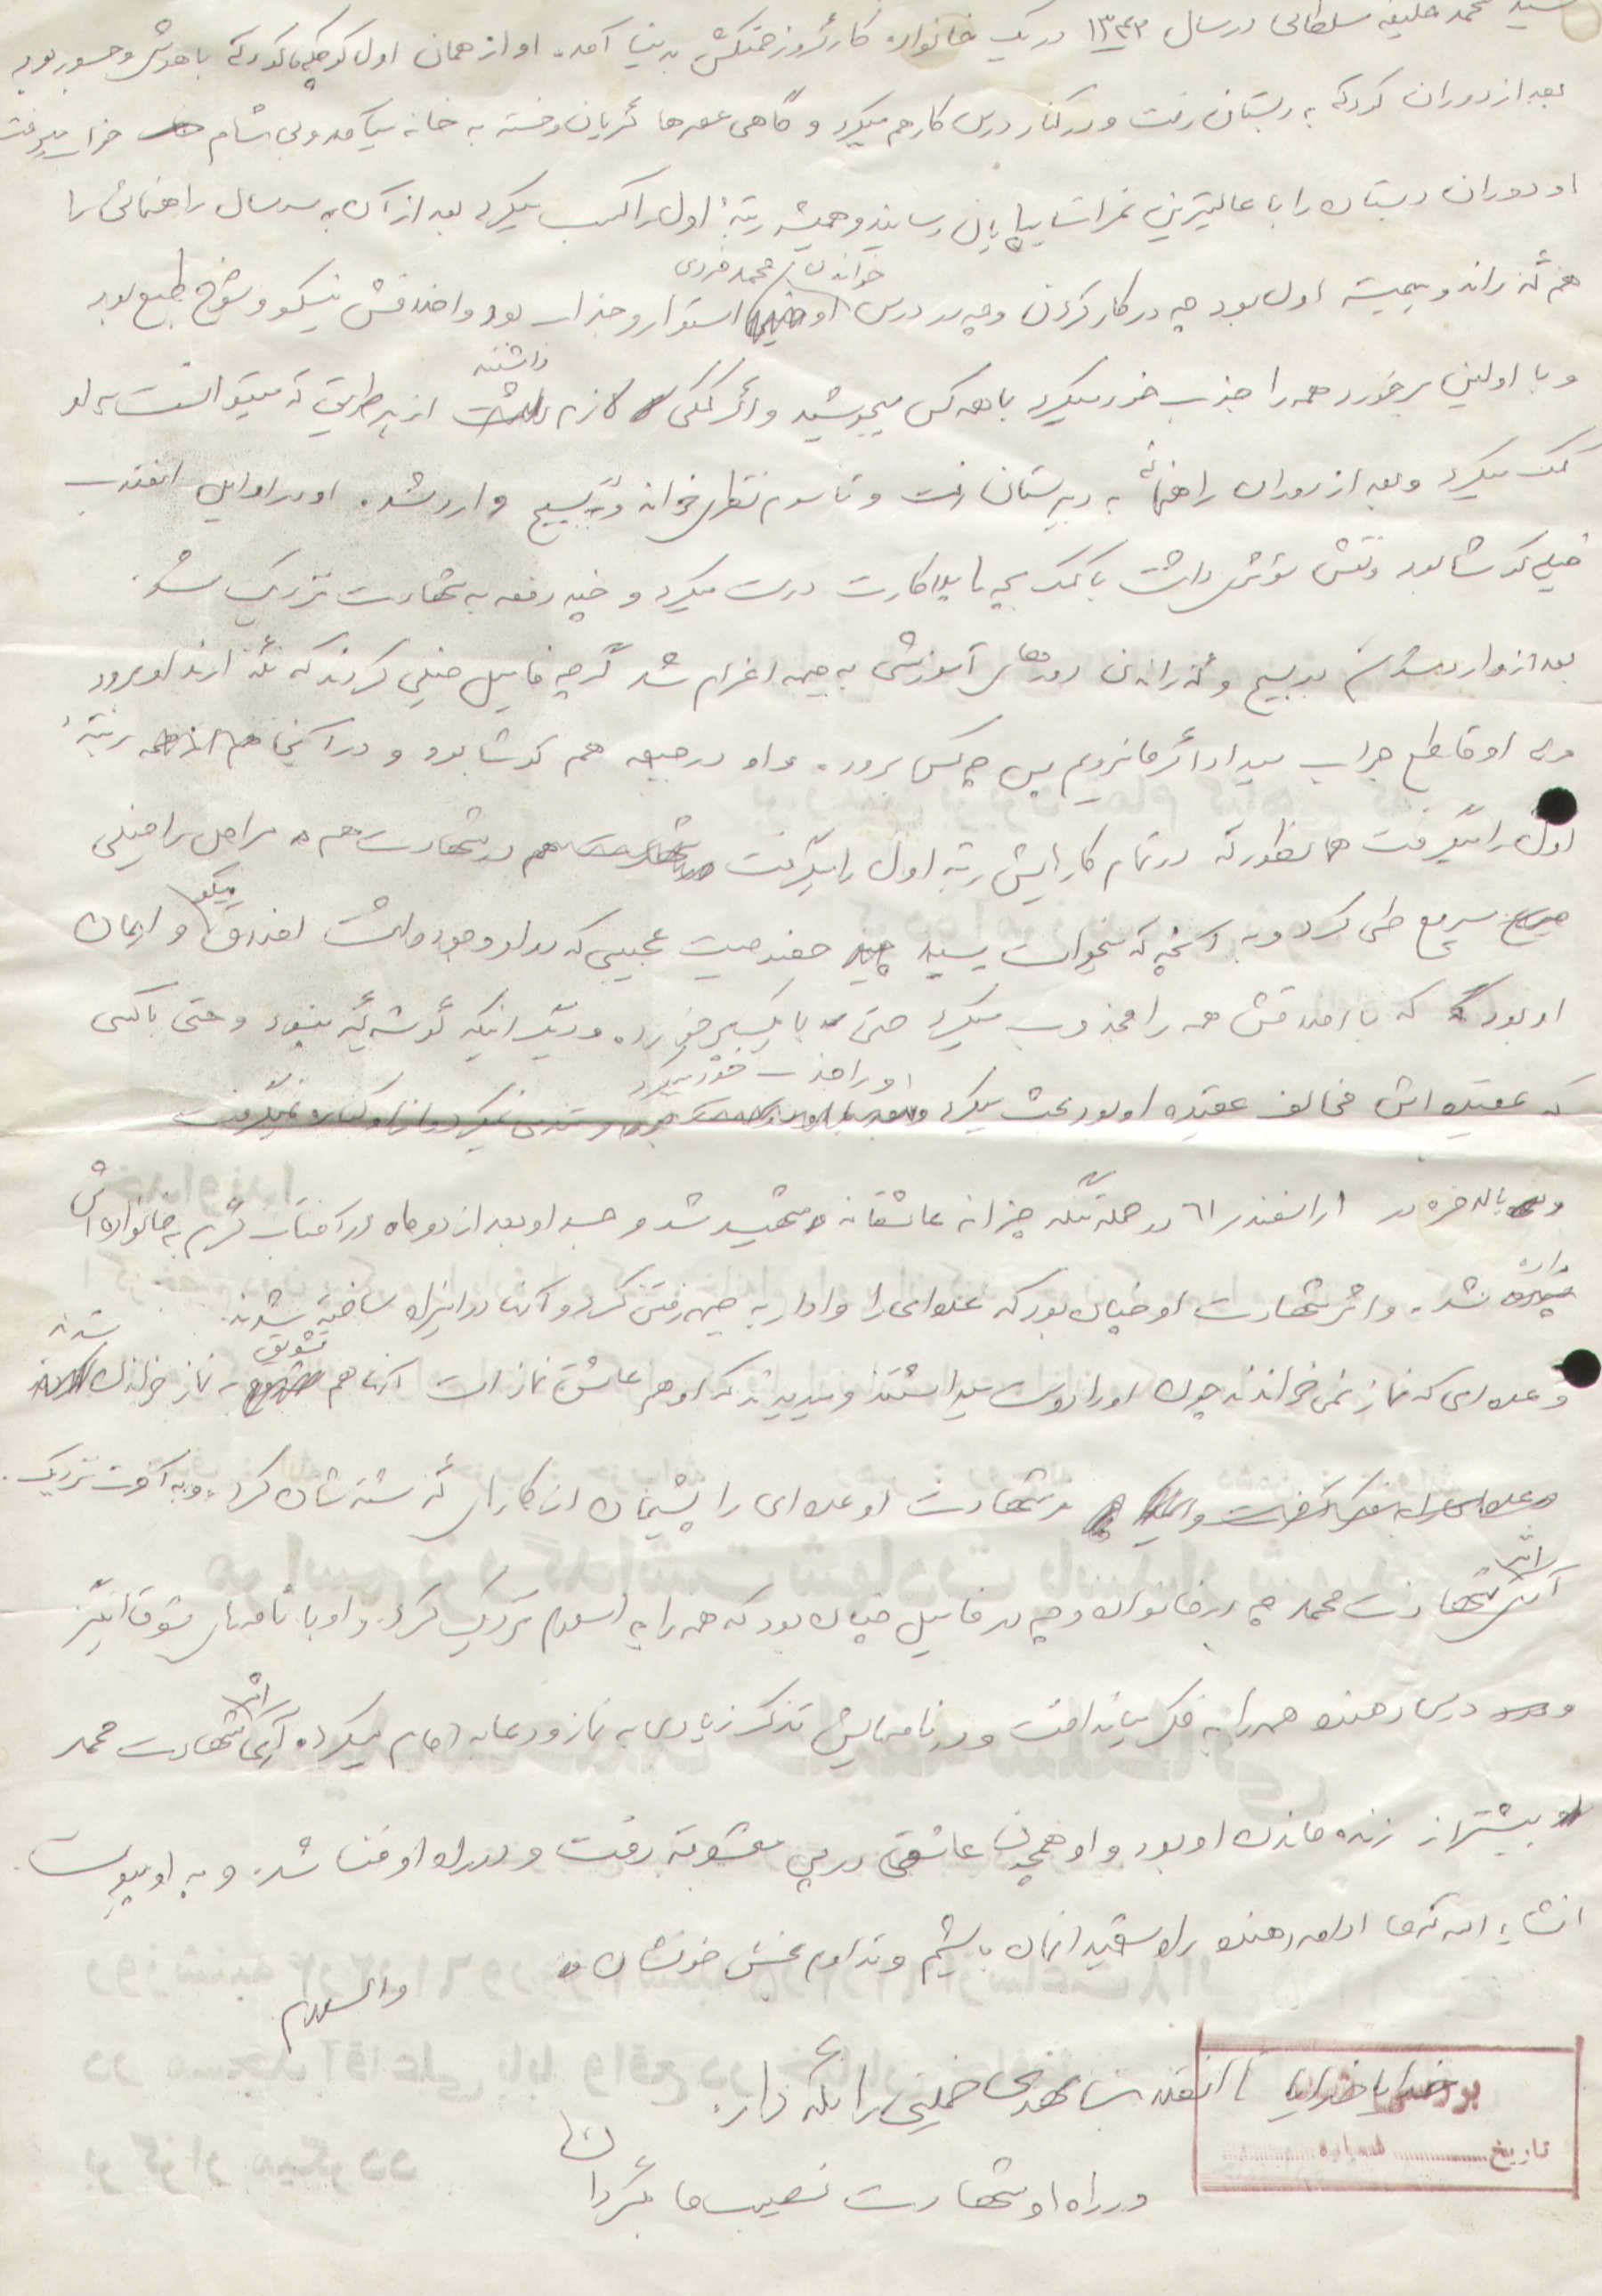 سید محمد خلیفه سلطانی در سال ۱۳۴۳ در یک خانواده کارگر و زحمتکش بدنیا آمد. او از همان اول کوچکی کودکی باهوش و جسور بود
بعد از دوران کودکی به دبستان رفت و در کنار درس کار هم میکرد و گاهی عصرها گریان و خسته به خانه میآمد و بی شام خواب میرفت
او دوران دبستان را با عالیترین نمرات بپایان رسانید و همیشه رتبهٔ اول را کسب میکرد بعد از آن به سه سال راهنمائی را
هم گذراند و همیشه اول بود چه در کار کردن و چه در درس خواندن محمد فردی استوار و جذاب بود و اخلاقش نیکو و شوخ طبع بود
و با اولین برخورد همه را جذب خود میکرد با همه کس میجوشید و اگر کمکی لازم داشتند از هر طریقی که میتوانست به او
کمک میکرد و بعد از دوران راهنمائی به دبیرستان رفت و تا سوم نظری خواند و به بسیج وارد شد. او در اوایل انقلاب
خیلی کوشا بود و نقش مؤثری داشت با کمک بچه ها پلاکارت درست میکرد و چند دفعه به شهادت نزدیک شد.
بعد از وارد شدن به بسیج و گذراندن دورههای آموزشی به جبهه اعزام شد گرچه فامیل خیلی کردند که نگذارند او برود
ولی او قاطع جواب میداد اگر ما نرویم پس چه کس برود. و او در جبهه هم کوشا بود و در آنجا هم رتبهٔ
اول را میگرفت همانطور که در تمام کارهایش رتبه اول را میگرفت در شهادت هم مراحل را خیلی
سریع طی کرد و به آنچه که میخواست رسید خصوصیت عجیبی که در او وجود داشت اخلاق نیکو و ایمان
او بود که با اخلاقش همه را مجذوب میکرد حتی با یکبار برخورد. و دیگر اینکه گوشه گیر نبود و حتی با کسی
که عقیده اش مخالف عقیده او بود بحث میکرد و او را جذب خود میکرد
و بالاخره در اسفند ۶۱ در حمله تنگه چزابه عاشقانه شهید شد و جسد او بعد از دو ماه در آفتاب گرم به خانواده اش
داده شد. و اثر شهادت او چنان بود که عدهای را وادار به جبهه رفتن کرد و آنان در این راه ساخته شدند.
و عدهای که نماز نمی خواندند چون او را دوست میداشتند و میدیدند که او هم عاشق نماز است آنها هم تشویق به نماز خواندن شدند
شهادت او عدهای را پشیمان از کارهای گذشته شان کرد. و به آخرت نزدیک.
اثر شهادت محمد چه در خانواده و چه در فامیل چنان بود که همه را به اسلام نزدیک کرد. و او با نامه های شوق انگیز
و درس دهنده همه را به فکر میانداخت و در نامههایش تذکر زیادی به نماز و دعا به امام میکرد. اثر شهادت محمد
بیشتر از زنده ماندن او بود و او همچون عاشقی در پی معشوق رفت و در راه او فنا شد. و به او پیوست.
انشاءاله که ما ادامه دهنده راه شهیدانمان باشیم و تداوم بخش خونشان
والسلام
خدایا خدایا تا انقلاب مهدی خمینی را نگه دار.
در راه او شهادت نصیب ما بگردان
تاریخ ............ شماره ............